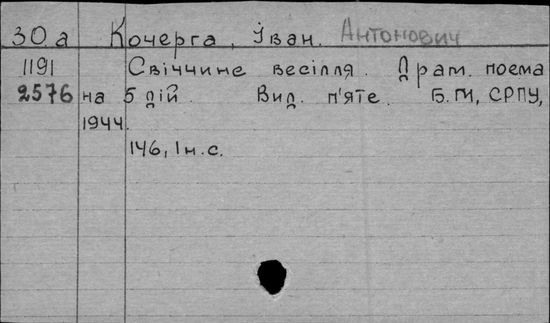 30.а Кочерга, Іван. Антонович
1191 Свіччине весілля. Драм. поема
2576 на 5 дій. Вид. п'яте. Б.м, СРПУ,
1944.
146, 1 н.с.